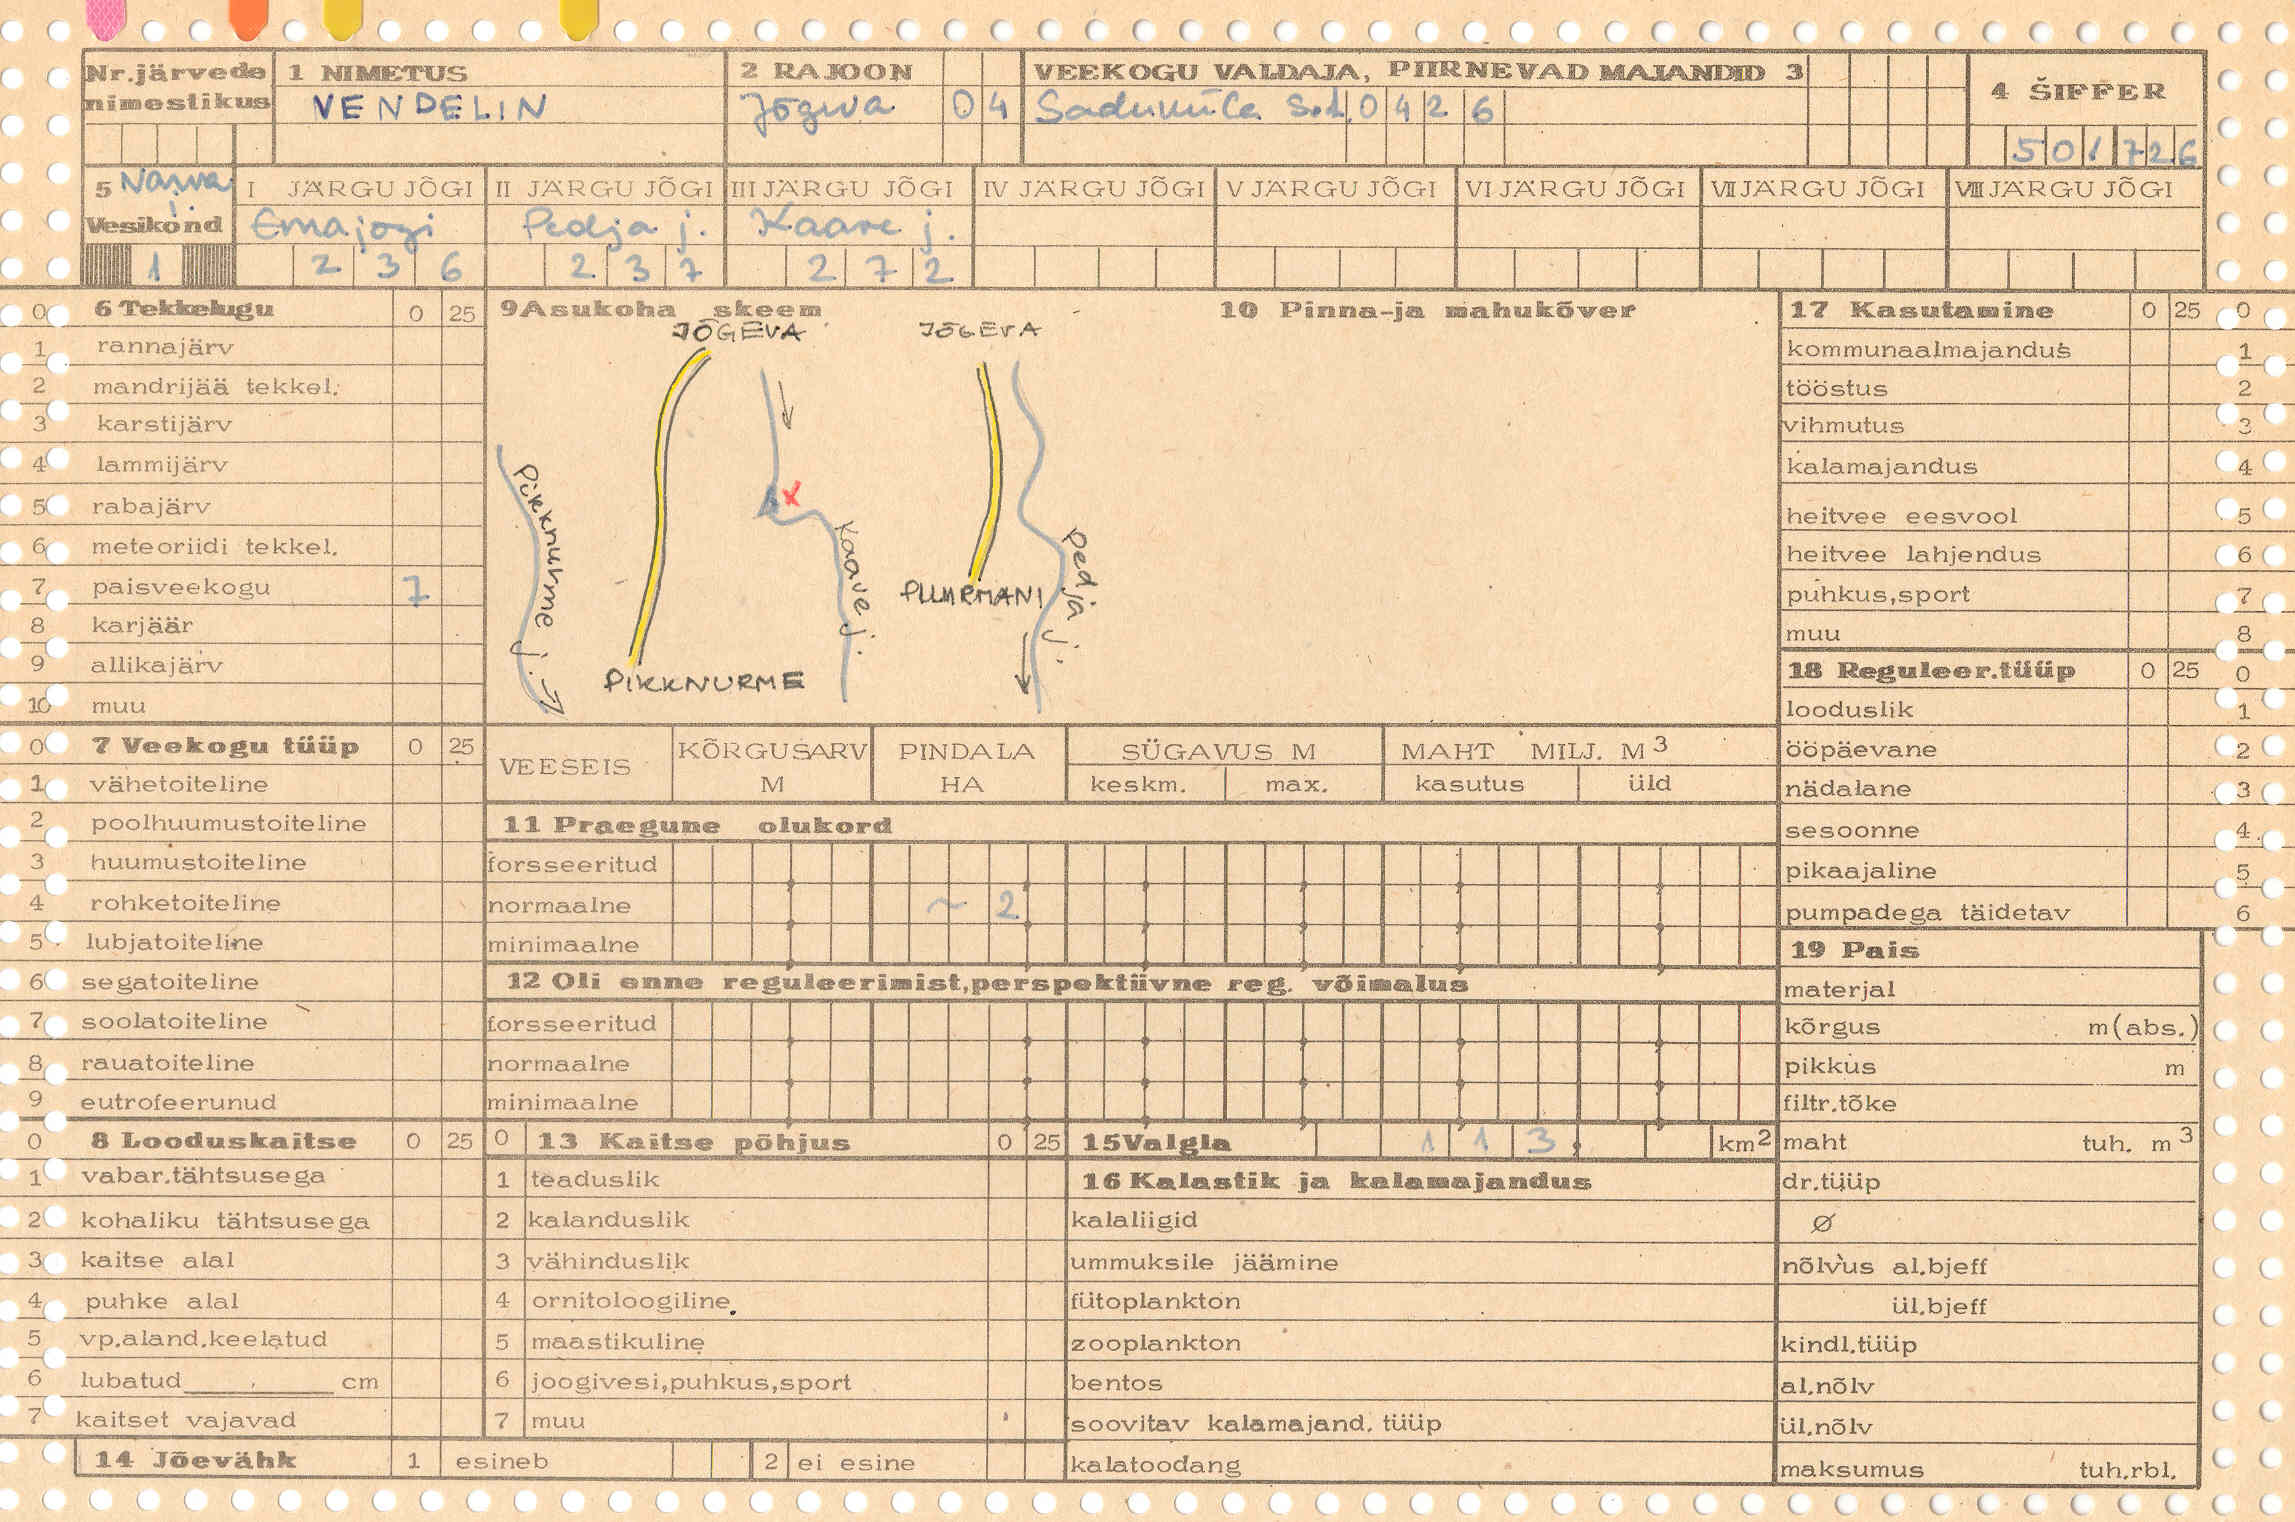 Nr.järvede nimestikus
1 NIMETUS
VENDELIN
2 RAJOON
Jõgeva 04
VEEKOGU VALDAJA, PIIRNEVAD MAJANDID 3
Saduküla s.t. 0426
4 ŠIFFER
501726
5 Narva j.
Vesikond
1
I JÄRGU JÕGI
Emajõgi
236
II JÄRGU JÕGI
Pedja j.
237
III JÄRGU JÕGI
Kaave j.
272
IV JÄRGU JÕGI
V JÄRGU JÕGI
VI JÄRGU JÕGI
VII JÄRGU JÕGI
VIII JÄRGU JÕGI
0 6 Tekkelugu 0 25
1 rannajärv
2 mandrijää tekkel.
3 karstijärv
4 lammijärv
5 rabajärv
6 meteoriidi tekkel.
7 paisveekogu 7
8 karjäär
9 allikajärv
10 muu
9 Asukoha skeem
JÕGEVA
JÕGEVA
Pikknurme j.
Kaave j.
Pedja j.
PUURMANI
PIKKNURME
10 Pinna-ja mahukõver
17 Kasutamine 0 25 0
kommunaalmajandus 1
tööstus 2
vihmutus 3
kalamajandus 4
heitvee eesvool 5
heitvee lahjendus 6
puhkus,sport 7
muu 8
18 Reguleer.tüüp 0 25 0
looduslik 1
ööpäevane 2
nädalane 3
sesoonne 4
pikaajaline 5
pumpadega täidetav 6
0 7 Veekogu tüüp 0 25
1 vähetoiteline
2 poolhuumustoiteline
3 huumustoiteline
4 rohketoiteline
5 lubjatoiteline
6 segatoiteline
7 soolatoiteline
8 rauatoiteline
9 eutrofeerunud
VEESEIS
KÕRGUSARV M
PINDALA HA
SÜGAVUS M
keskm. max.
MAHT MILJ. M3
kasutus üld
11 Praegune olukord
forsseeritud
normaalne ~ 2
minimaalne
12 Oli enne reguleerimist,perspektiivne reg. võimalus
forsseeritud
normaalne
minimaalne
19 Pais
materjal
kõrgus m(abs.)
pikkus m
filtr.tõke
maht tuh. m3
dr.tüüp
Ø
nõlvus al.bjeff
ül.bjeff
kindl.tüüp
al.nõlv
ül.nõlv
maksumus tuh.rbl.
0 8 Looduskaitse 0 25
1 vabar.tähtsusega
2 kohaliku tähtsusega
3 kaitse alal
4 puhke alal
5 vp.aland.keelatud
6 lubatud cm
7 kaitset vajavad
0 13 Kaitse põhjus 0 25
1 teaduslik
2 kalanduslik
3 vähinduslik
4 ornitoloogiline
5 maastikuline
6 joogivesi,puhkus,sport
7 muu
15 Valgla 113, km2
16 Kalastik ja kalamajandus
kalaliigid
ummuksile jäämine
fütoplankton
zooplankton
bentos
soovitav kalamajand. tüüp
kalatoodang
14 Jõevähk 1 esineb 2 ei esine